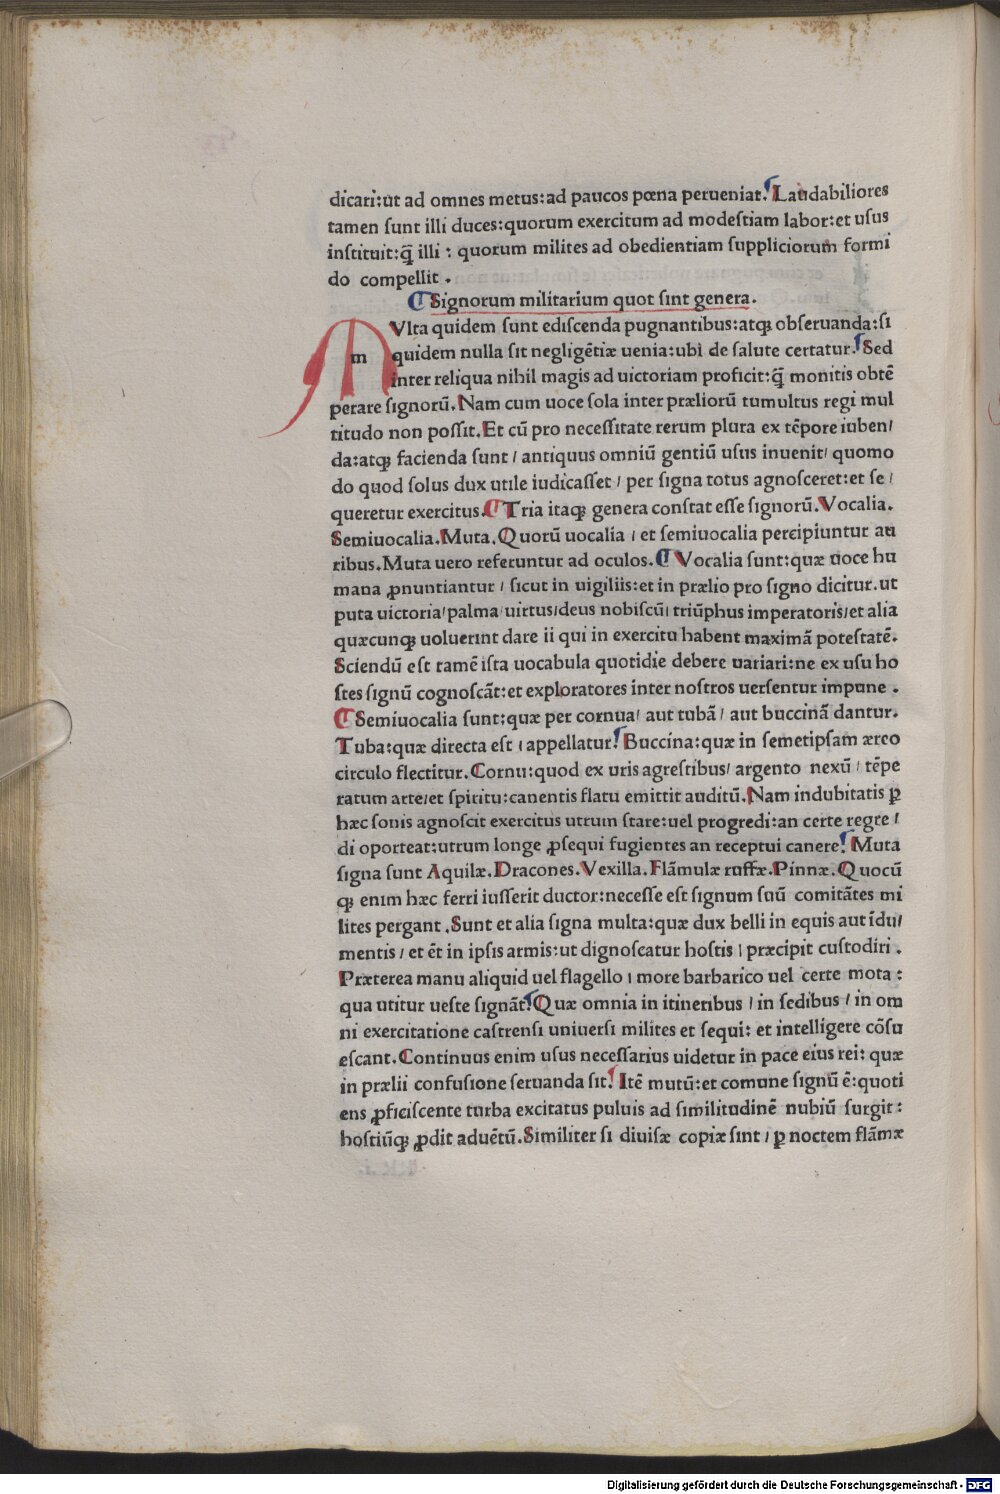 dicari:ut ad omnes metus:ad paucos pœna perueniat. Laudabiliores
tamen ſunt illi duces:quorum exercitum ad modeſtiam labor:et uſus
inſtituit:q̄ illi : quorum milites ad obedientiam ſuppliciorum formi
do compellit .
Signorum militarium quot ſint genera.
m
Vlta quidem ſunt ediſcenda pugnantibus:atqꝫ obſeruanda:ſi
quidem nulla ſit negligētiæ uenia:ubi de ſalute certatur. Sed
inter reliqua nihil magis ad uictoriam proficit:q̄ monitis obtē
perare ſignorū. Nam cum uoce ſola inter præliorū tumultus regi mul
titudo non poſſit. Et cū pro neceſſitate rerum plura ex tēpore iuben/
da:atqꝫ facienda ſunt/ antiquus omniū gentiū uſus inuenit/ quomo
do quod ſolus dux utile iudicaſſet / per ſigna totus agnoſceret:et ſe /
queretur exercitus. Tria itaqꝫ genera conſtat eſſe ſignorū. Vocalia.
Semiuocalia. Muta. Quorū uocalia / et ſemiuocalia percipiuntur au
ribus. Muta uero referuntur ad oculos. Vocalia ſunt:quæ uoce hu
mana ꝓnuntiantur / ſicut in uigiliis:et in prælio pro ſigno dicitur. ut
puta uictoria/palma/uirtus/deus nobiſcū/ triūphus imperatoris/et alia
quæcunqꝫ uoluerint dare ii qui in exercitu habent maximā poteſtatē.
Sciendū eſt tamē iſta uocabula quotidie debere uariari:ne ex uſu ho
ſtes ſignū cognoſcāt:et exploratores inter noſtros uerſentur impune .
Semiuocalia ſunt:quæ per cornua/ aut tubā/ aut buccinā dantur.
Tuba:quæ directa eſt / appellatur. Buccina:quæ in ſemetipſam æreo
circulo flectitur. Cornu:quod ex uris agreſtibus/ argento nexū / tēpe
ratum arte/et ſpiritu:canentis flatu emittit auditū. Nam indubitatis ꝑ
hæc ſonis agnoſcit exercitus utrum ſtare:uel progredi:an certe regre /
di oporteat:utrum longe ꝓſequi fugientes an receptui canere. Muta
ſigna ſunt Aquilæ. Dracones. Vexilla. Flāmulæ ruffæ. Pinnæ. Quocū
qꝫ enim hæc ferri iuſſerit ductor:neceſſe eſt ſignum ſuū comitātes mi
lites pergant . Sunt et alia ſigna multa:quæ dux belli in equis aut īdu/
mentis / et ēt in ipſis armis:ut dignoſcatur hoſtis / præcipit cuſtodiri .
Præterea manu aliquid uel flagello / more barbarico uel certe mota :
qua utitur ueſte ſignāt. Quæ omnia in itineribus / in ſedibus / in om
ni exercitatione caſtrenſi uniuerſi milites et ſequi: et intelligere cōſu
eſcant. Continuus enim uſus neceſſarius uidetur in pace eius rei: quæ
in prælii confuſione ſeruanda ſit. Itē mutū:et comune ſignū ē:quoti
ens ꝓficiſcente turba excitatus puluis ad ſimilitudinē nubiū ſurgit :
hoſtiūqꝫ ꝓdit aduētū. Similiter ſi diuiſæ copiæ ſint / ꝑ noctem flāmæ
Digitalisierung gefördert durch die Deutsche Forschungsgemeinschaft - DFG